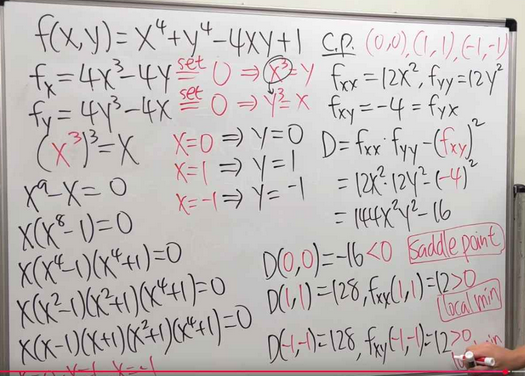 f(x,y)=x⁴+y⁴-4xy+1
fx=4x³-4y set= 0 ⇒ x³=y
fy=4y³-4x set= 0 ⇒ y³=x
(x³)³=x
x⁹-x=0
x(x⁸-1)=0
x(x⁴-1)(x⁴+1)=0
x(x²-1)(x²+1)(x⁴+1)=0
x(x-1)(x+1)(x²+1)(x⁴+1)=0
x=-1
x=0 ⇒ y=0
x=1 ⇒ y=1
x=-1 ⇒ y=-1
C.P. (0,0), (1,1), (-1,-1)
fxx=12x², fyy=12y²
fxy=-4=fyx
D=fxx·fyy-(fxy)²
=12x²·12y²-(-4)²
=144x²y²-16
D(0,0)=-16<0 Saddle point
D(1,1)=128, fxx(1,1)=12>0
Local min
D(-1,-1)=128, fxy(-1,-1)=12>0